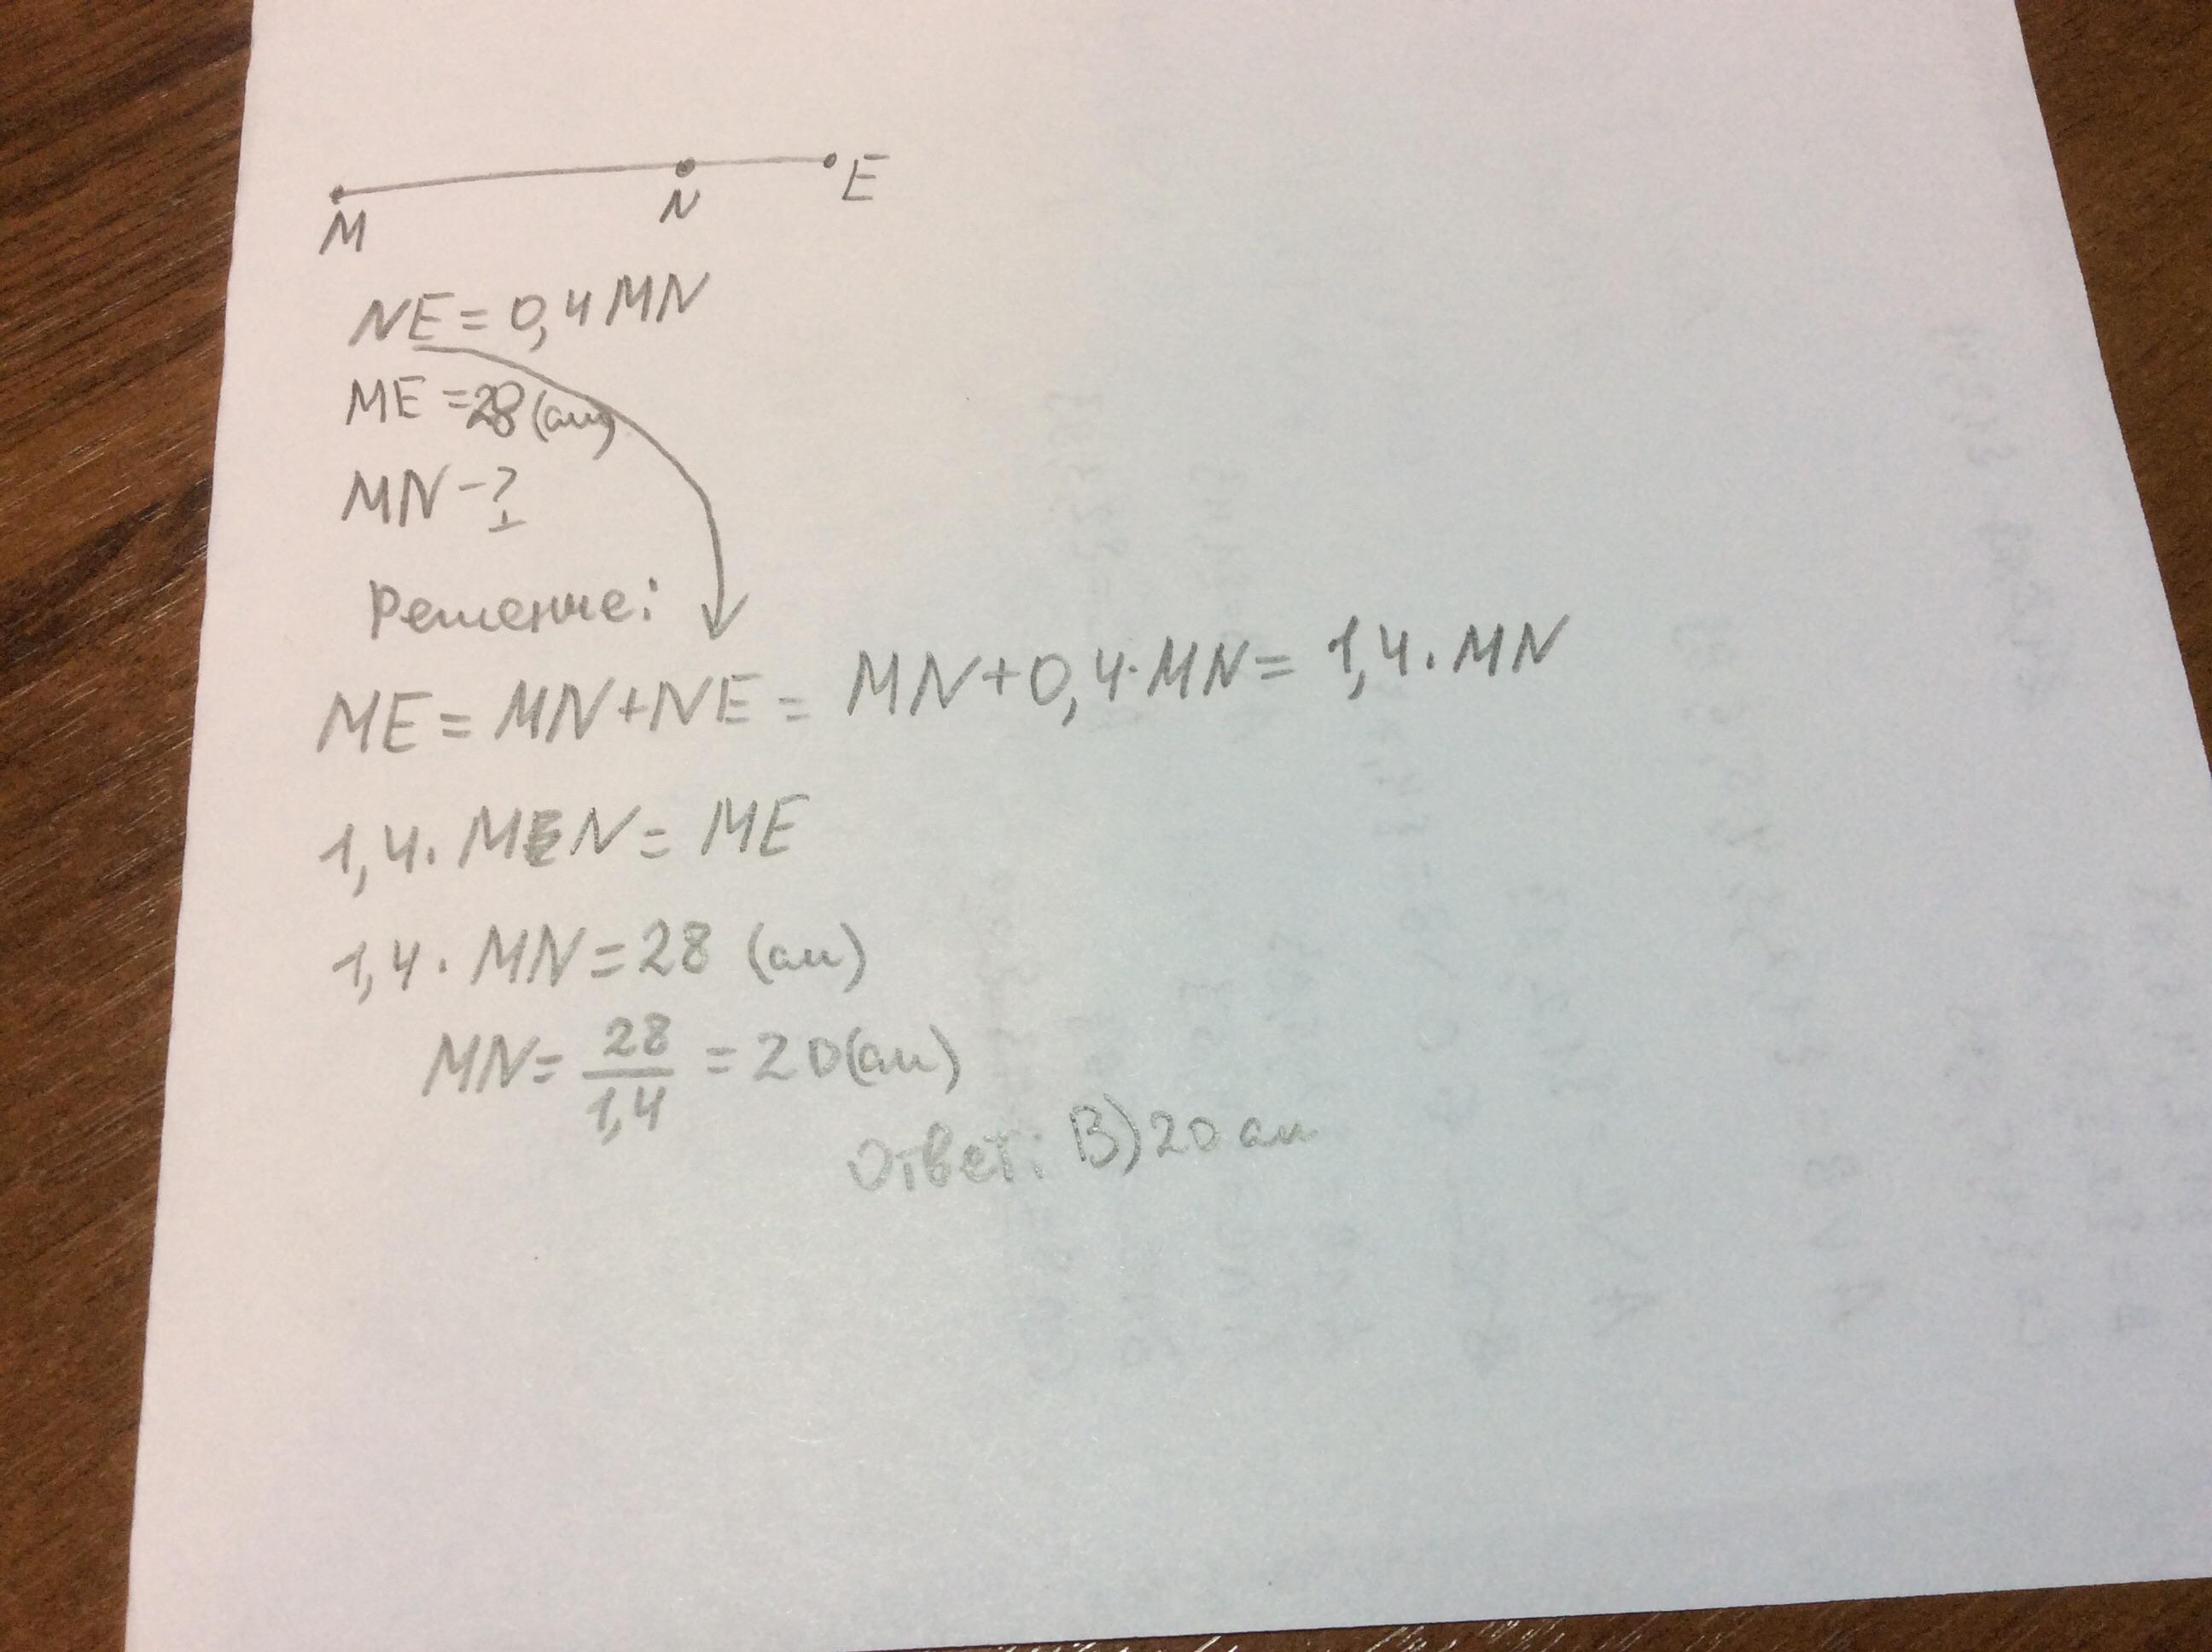 M N E
NE = 0,4 MN
ME = 28 (см)
MN - ?
Решение:
ME = MN + NE = MN + 0,4 · MN = 1,4 · MN
1,4 · MN = ME
1,4 · MN = 28 (см)
MN = 28/1,4 = 20 (см)
Ответ: В) 20 см